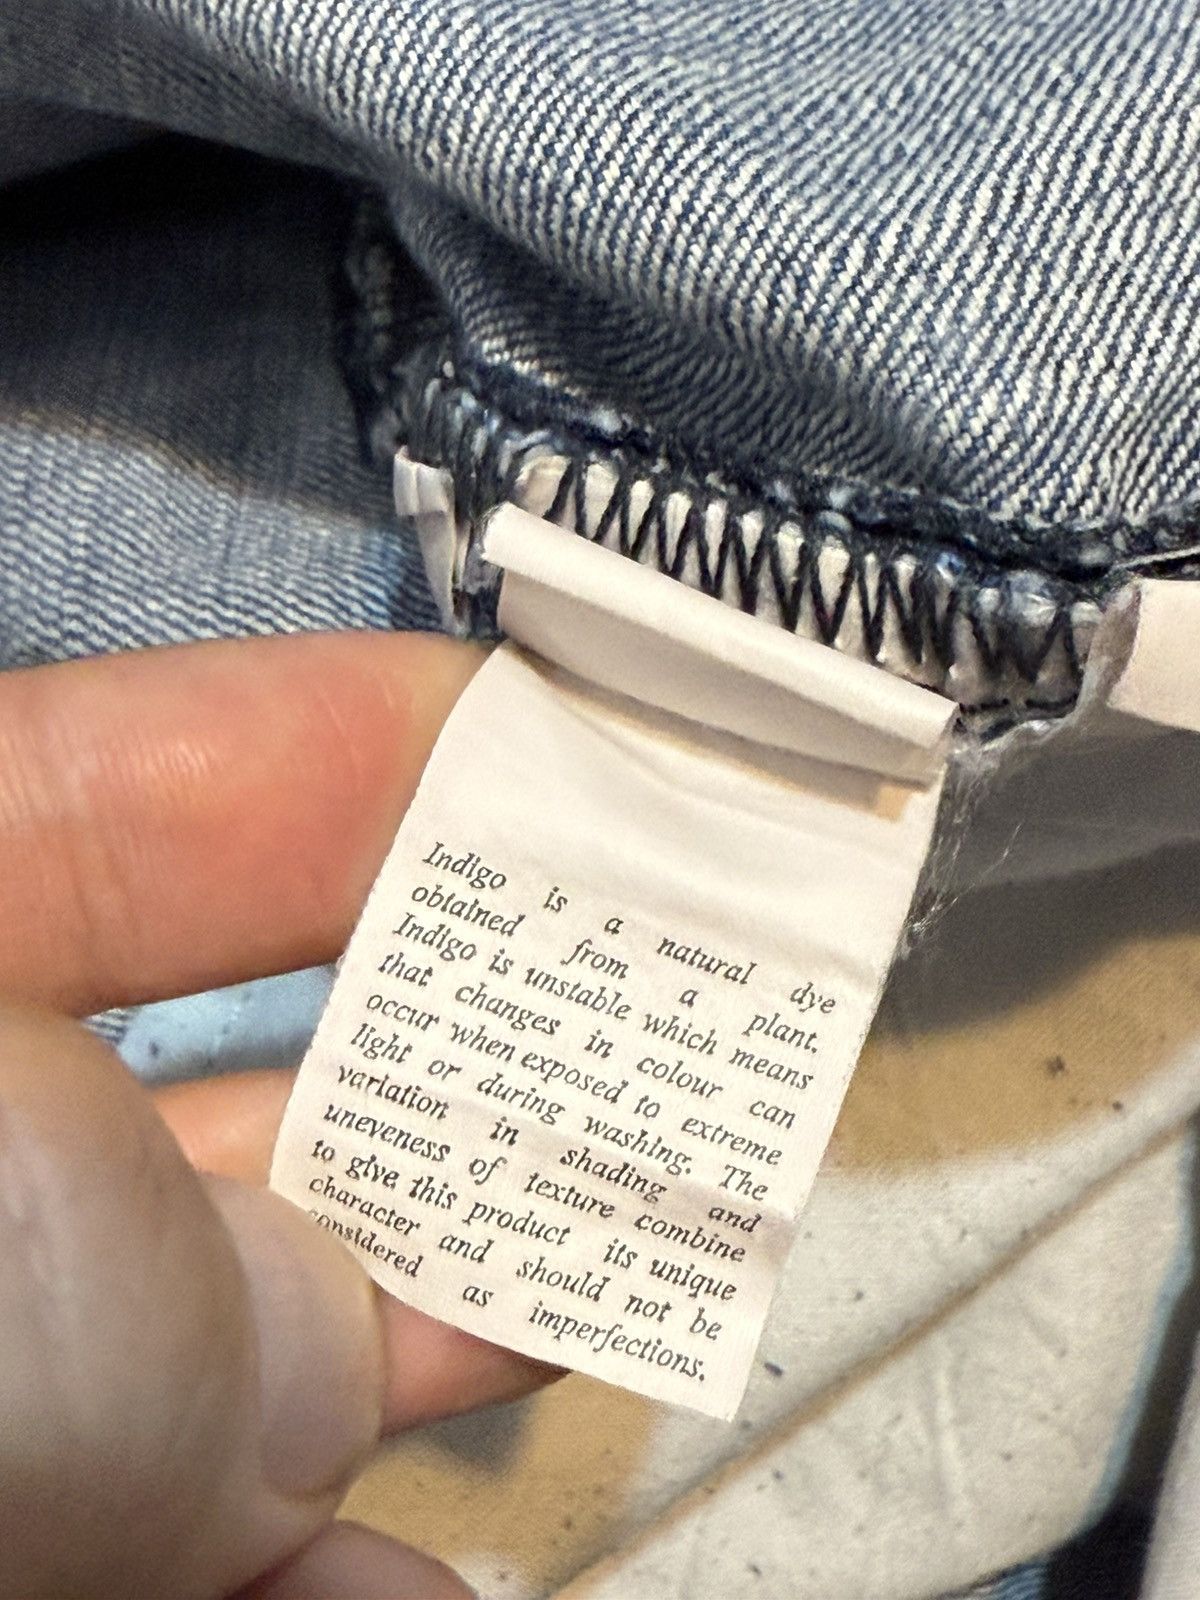 Indigo is a natural dye
obtained from a plant.
Indigo is unstable which means
that changes in colour can
occur when exposed to extreme
light or during washing. The
variation in shading and
uneveness of texture combine
to give this product its unique
character and should not be
considered as imperfections.